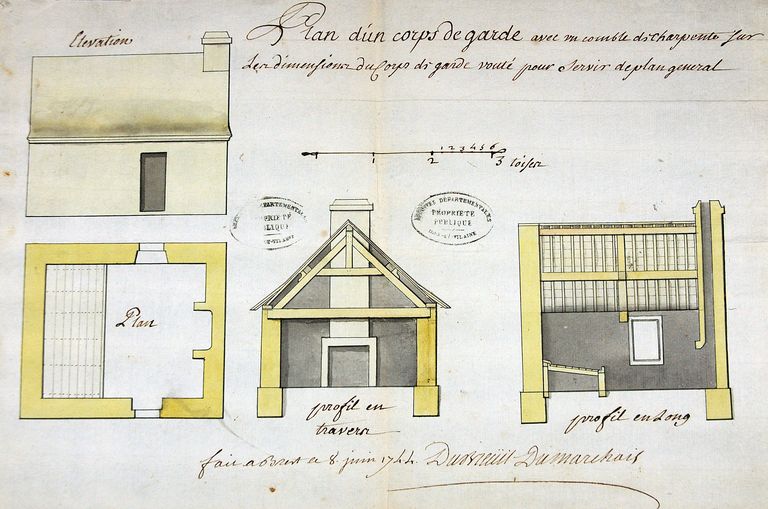 Plan d'un corps de garde avec un comble de charpente sur
les dimensions du Corps de garde vouté pour servir de plan general
Elevation
1 2 3 4 5 6
1 2 3 toises
ARCHIVES DÉPARTEMENTALES
PROPRIÉTÉ
PUBLIQUE
ILLE-ET-VILAINE
ARCHIVES DÉPARTEMENTALES
PROPRIÉTÉ
PUBLIQUE
ILLE-ET-VILAINE
Plan
profil en
travers
profil en Long
fait a Brest ce 8 juin 1744